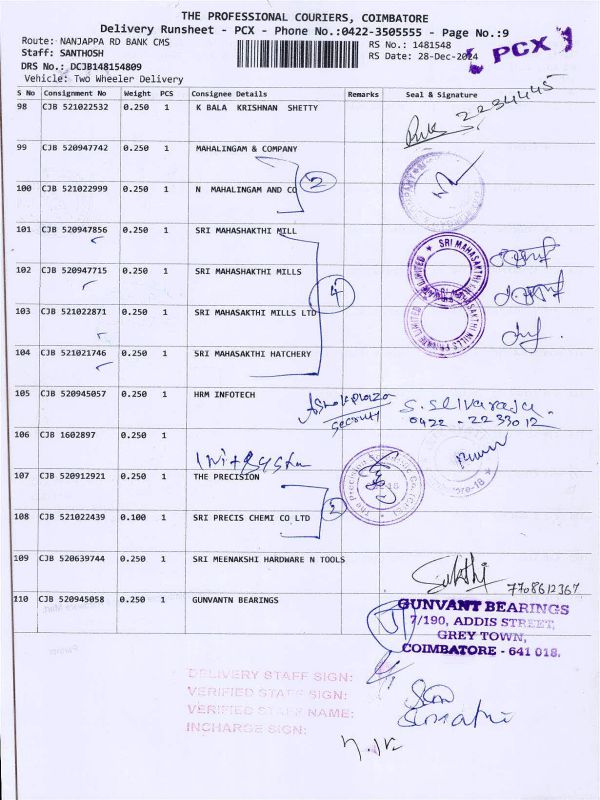 THE PROFESSIONAL COURIERS, COIMBATORE
Delivery Runsheet - PCX - Phone No.:0422-3505555 - Page No.:9
Route: NANJAPPA RD BANK CMS
RS No.: 1481548
Staff: SANTHOSH
RS Date: 28-Dec-2024
PCX
DRS No.: DCJB148154809
Vehicle: Two Wheeler Delivery
S No Consignment No Weight PCS Consignee Details Remarks Seal & Signature
98 CJB 521022532 0.250 1 K BALA KRISHNAN SHETTY
2234445
99 CJB 520947742 0.250 1 MAHALINGAM & COMPANY
2
100 CJB 521022999 0.250 1 N MAHALINGAM AND CO
101 CJB 520947856 0.250 1 SRI MAHASHAKTHI MILL
102 CJB 520947715 0.250 1 SRI MAHASHAKTHI MILLS
4
103 CJB 521022871 0.250 1 SRI MAHASAKTHI MILLS LTD
104 CJB 521021746 0.250 1 SRI MAHASAKTHI HATCHERY
SRI MAHASAKTHI MILLS PRIVATE LIMITED
105 CJB 520945057 0.250 1 HRM INFOTECH
Ashok plaza
security
S. Selvaraja.
0422 - 2233012
106 CJB 1602897 0.250 1
107 CJB 520912921 0.250 1 THE PRECISION
108 CJB 521022439 0.100 1 SRI PRECIS CHEMI CO LTD
109 CJB 520639744 0.250 1 SRI MEENAKSHI HARDWARE N TOOLS
Sakthi
7708612367
110 CJB 520945058 0.250 1 GUNVANTN BEARINGS
GUNVANT BEARINGS
7/190, ADDIS STREET,
GREY TOWN,
COIMBATORE - 641 018.
DELIVERY STAFF SIGN:
VERIFIED STAFF SIGN:
VERIFIED STAFF NAME:
INCHARGE SIGN: